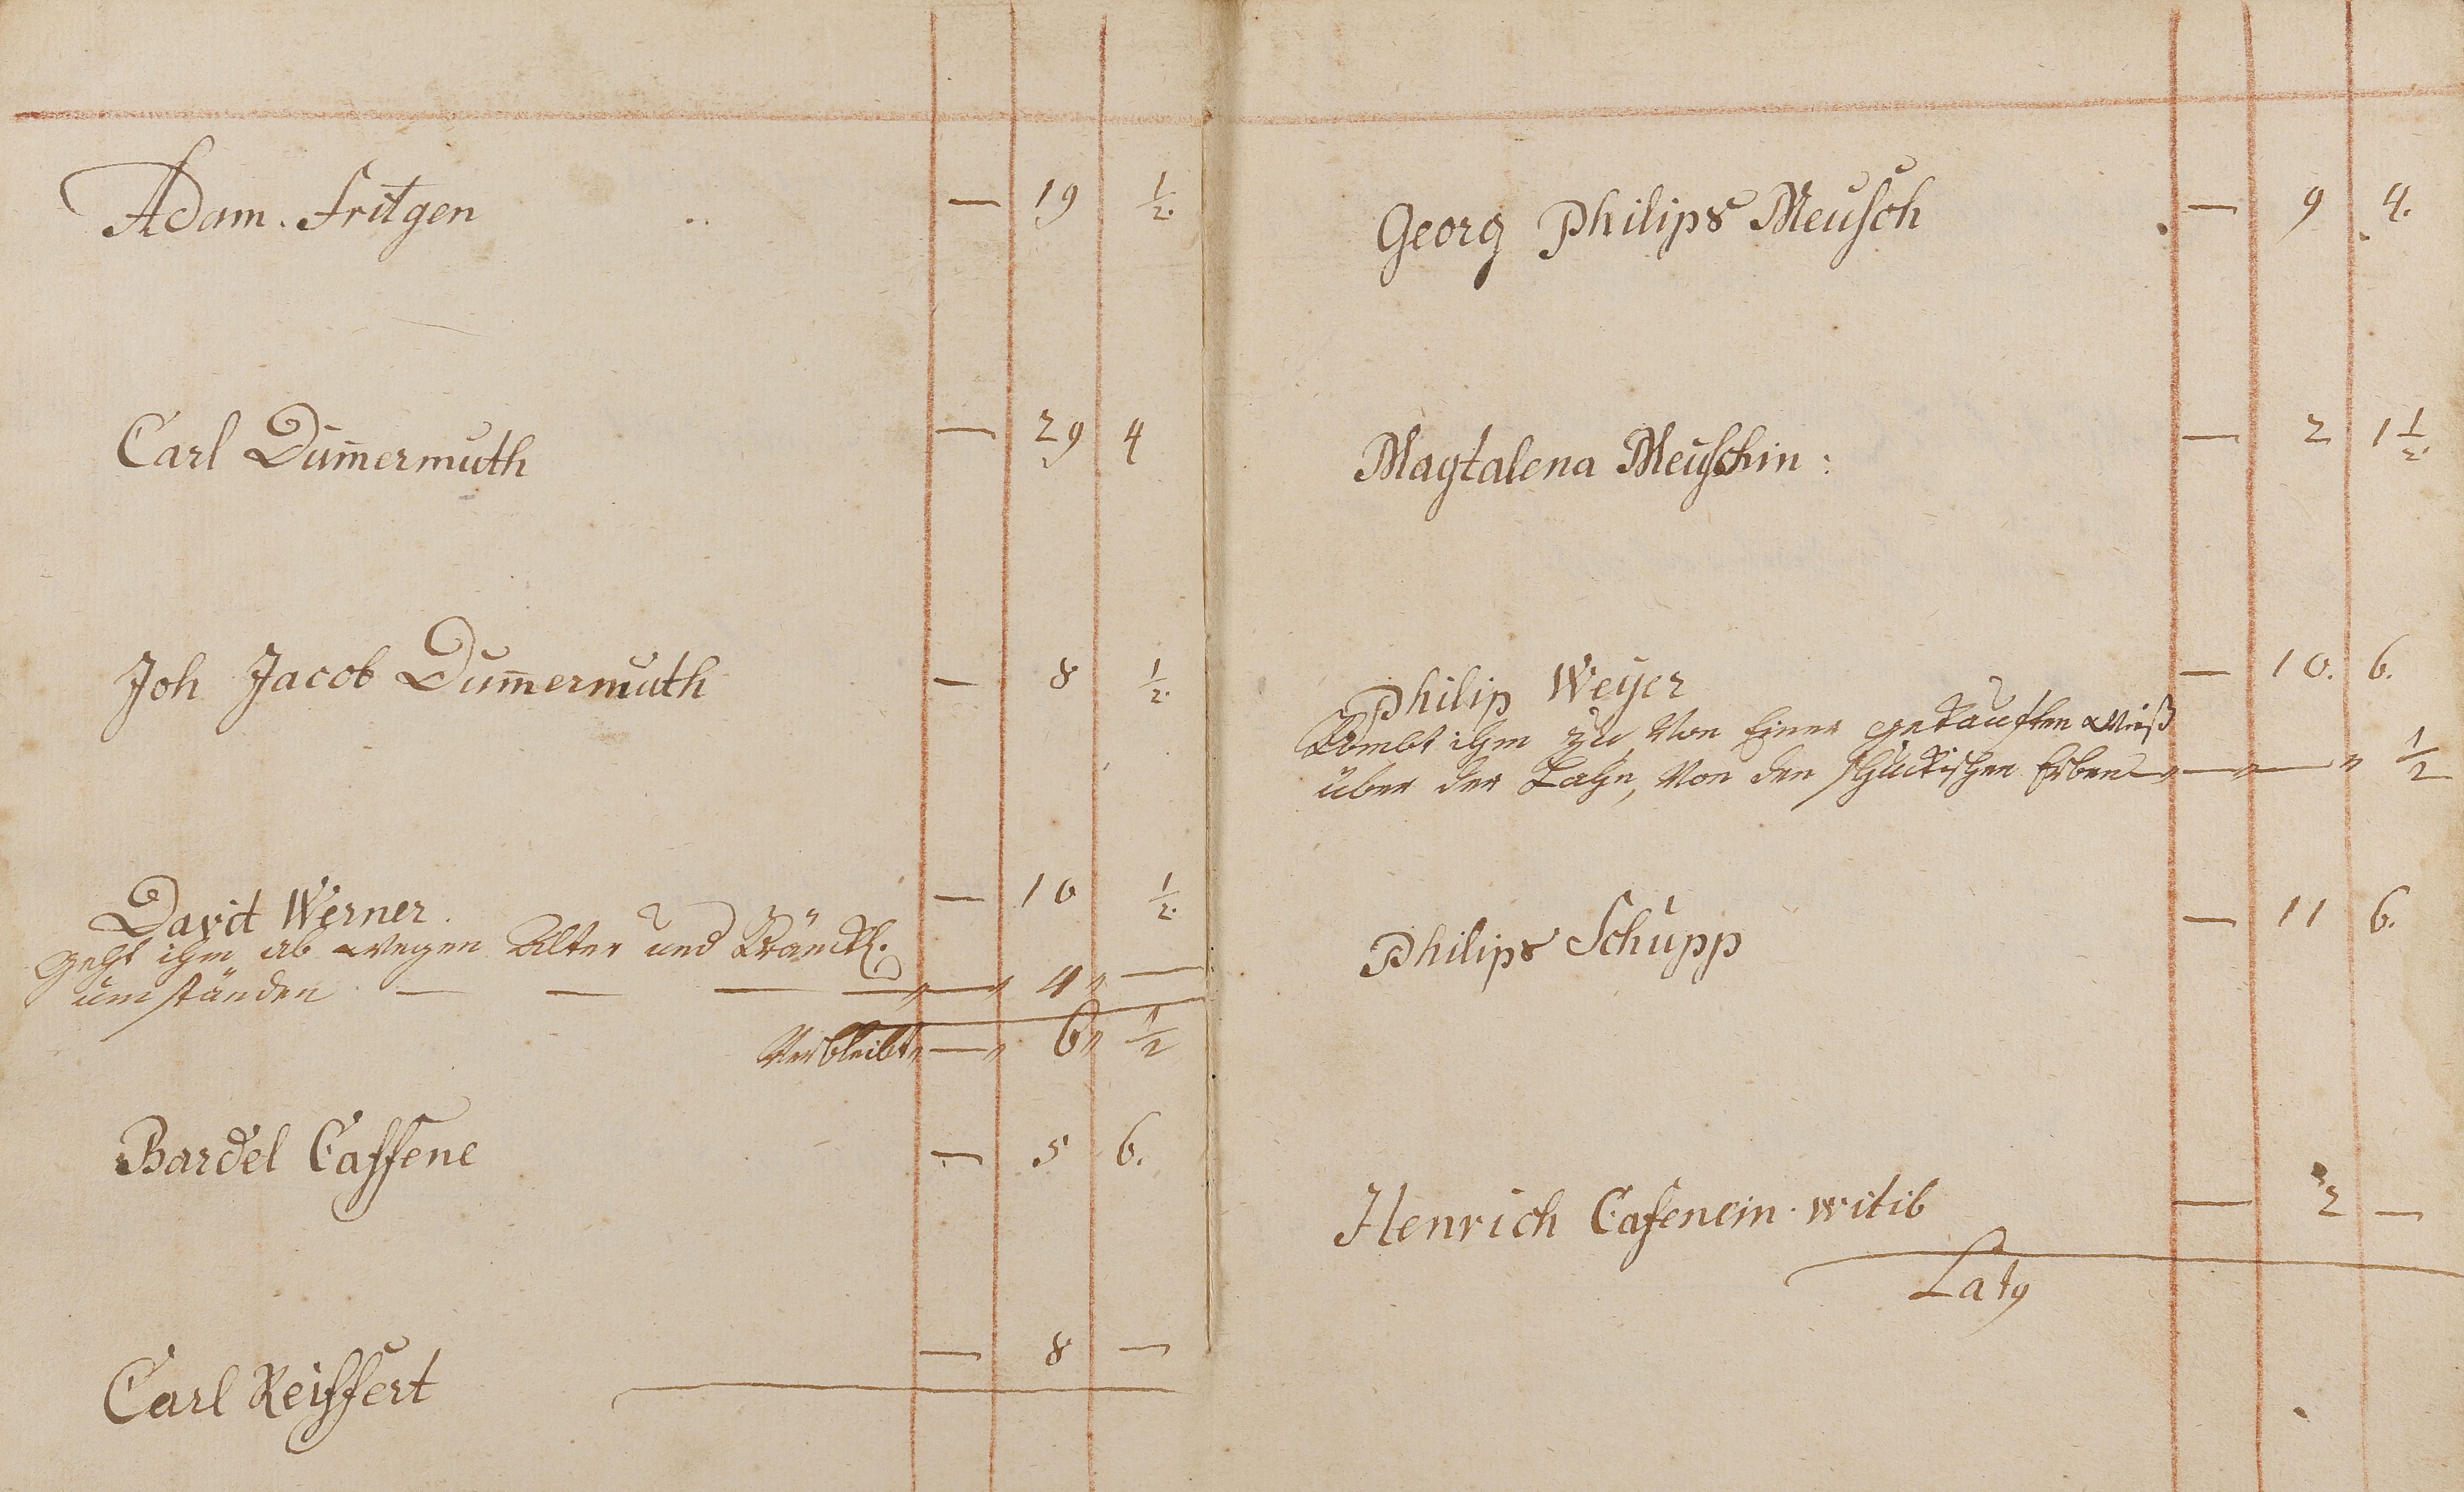 Adam. Fritgen — 19 ½.
Carl Dum̄ermuth — 29 4
Joh Jacob Dum̄ermuth — 8 ½.
Davit Werner. — 10 ½.
geht ihm ab wegen Alter und Kränckl.
umständen — — — — „ — „ 4 „ —
Verbleibt „ — „ 6 „ ½
Bardel Cassene — 5 6.
Carl Reiffert — 8 —
Georg Philips Meusch — 9 4.
Magtalena Meuschin: — 2 1½.
Philip Weyer — 10. 6.
Kombt ihm zu, Von Einer gekauften Wieß
über der Lahn, Von den Erben „ — „ — „ ½
Philips Schupp — 11 6.
Henrich Casenein. witib — 2 —
Latg